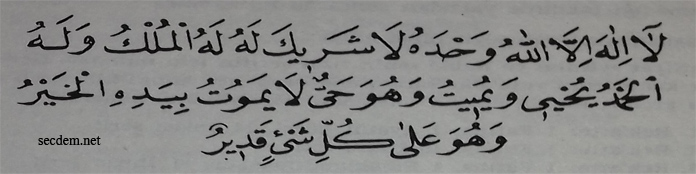 لَا اِلٰهَ اِلَّا اللهُ وَحْدَهُ لَا شَرِيكَ لَهُ لَهُ الْمُلْكُ وَلَهُ
الْحَمْدُ يُحْيِى وَيُمِيتُ وَهُوَ حَىٌّ لَا يَمُوتُ بِيَدِهِ الْخَيْرُ
وَهُوَ عَلٰى كُلِّ شَىْءٍ قَدِيرٌ
secdem.net